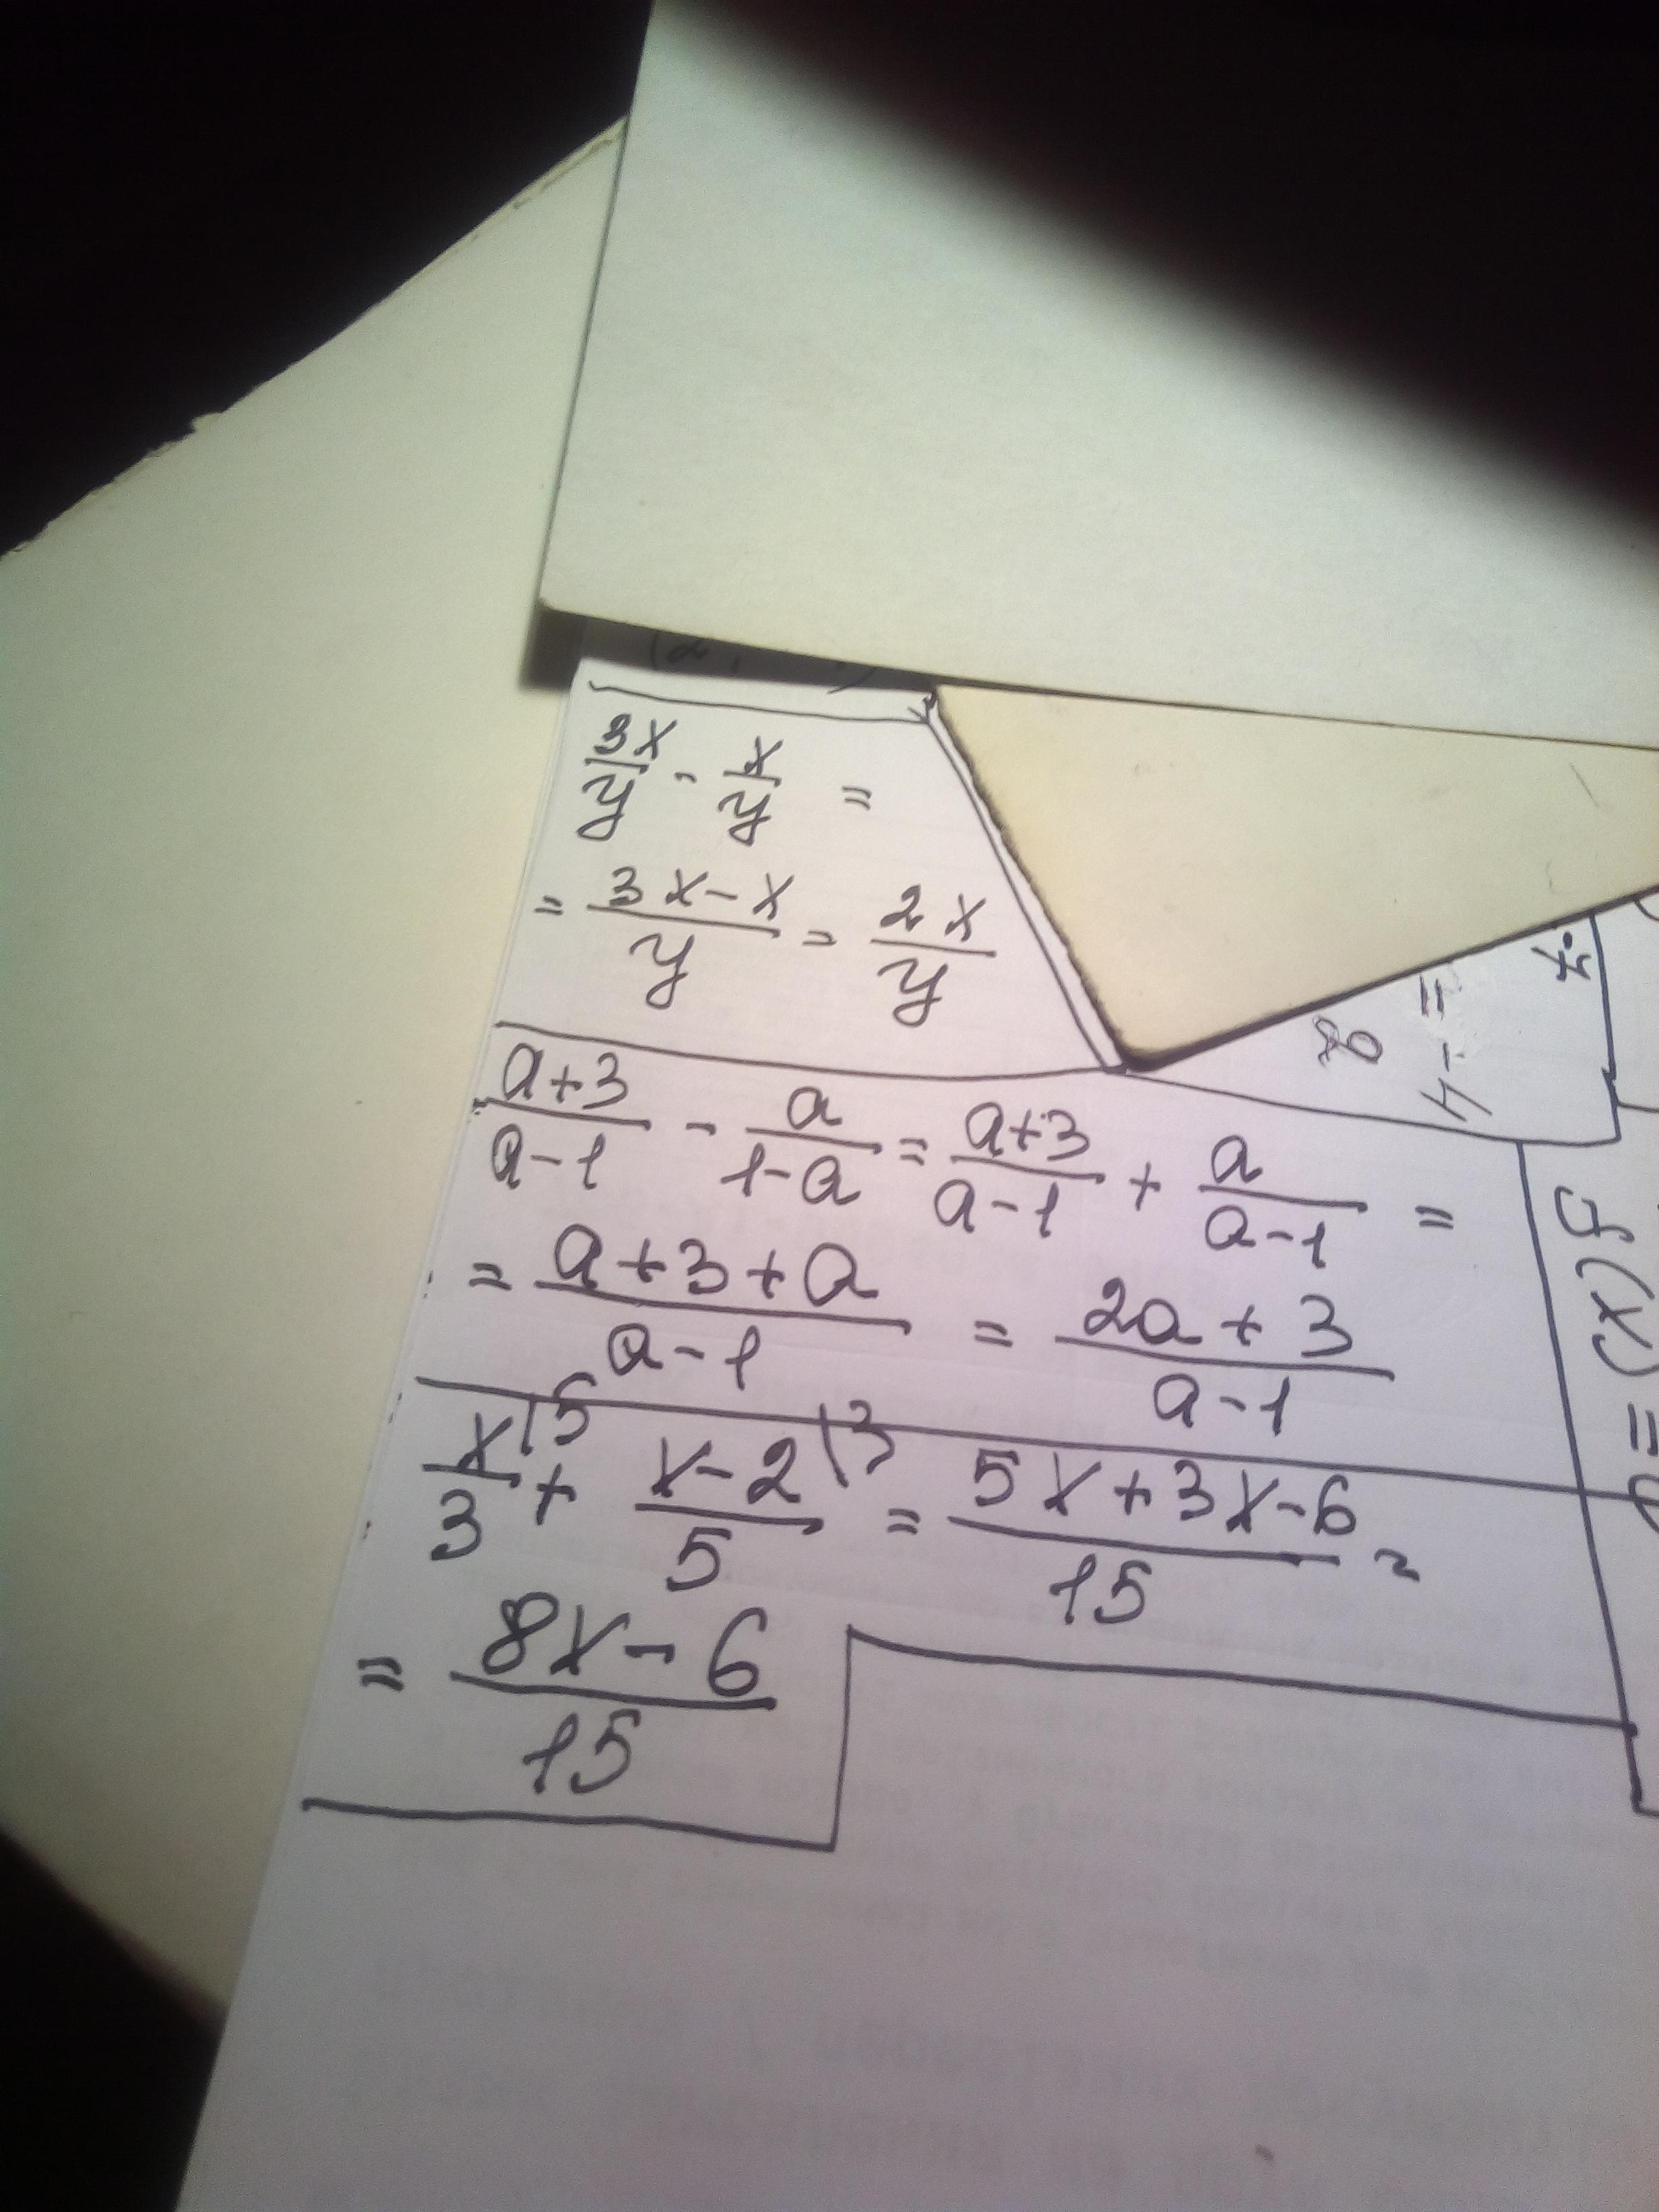 3x/y - x/y =
= (3x-x)/y = 2x/y
(a+3)/(a-1) - a/(1-a) = (a+3)/(a-1) + a/(a-1) =
= (a+3+a)/(a-1) = (2a+3)/(a-1)
x\5/3 + (x-2)\3/5 = (5x+3x-6)/15 =
= (8x-6)/15
f(x) =